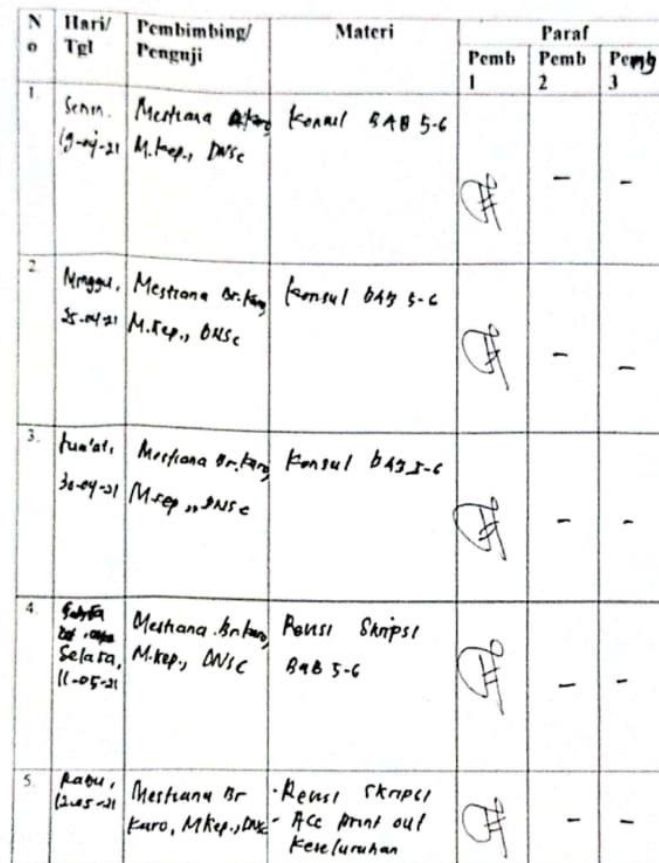 N
o
Hari/
Tgl
Pembimbing/
Penguji
Materi
Paraf
Pemb
1
Pemb
2
Pemb
3
1.
Senin.
19-04-21
Mestiana Br. Karo,
M.Kep., DNSc
Konsul BAB 5-6
-
-
2.
Minggu,
25-04-21
Mestiana Br. Karo,
M.Kep., DNSc
Konsul BAB 5-6
-
-
3.
Jum'at,
30-04-21
Mestiana Br. Karo,
M.Kep., DNSc
Konsul BAB 5-6
-
-
4.
Selasa,
11-05-21
Mestiana Br. Karo,
M.Kep., DNSc
Revisi Skripsi
BAB 5-6
-
-
5.
Rabu,
12-05-21
Mestiana Br
Karo, MKep., DNSc
- Revisi Skripsi
- Acc print out
Keseluruhan
-
-